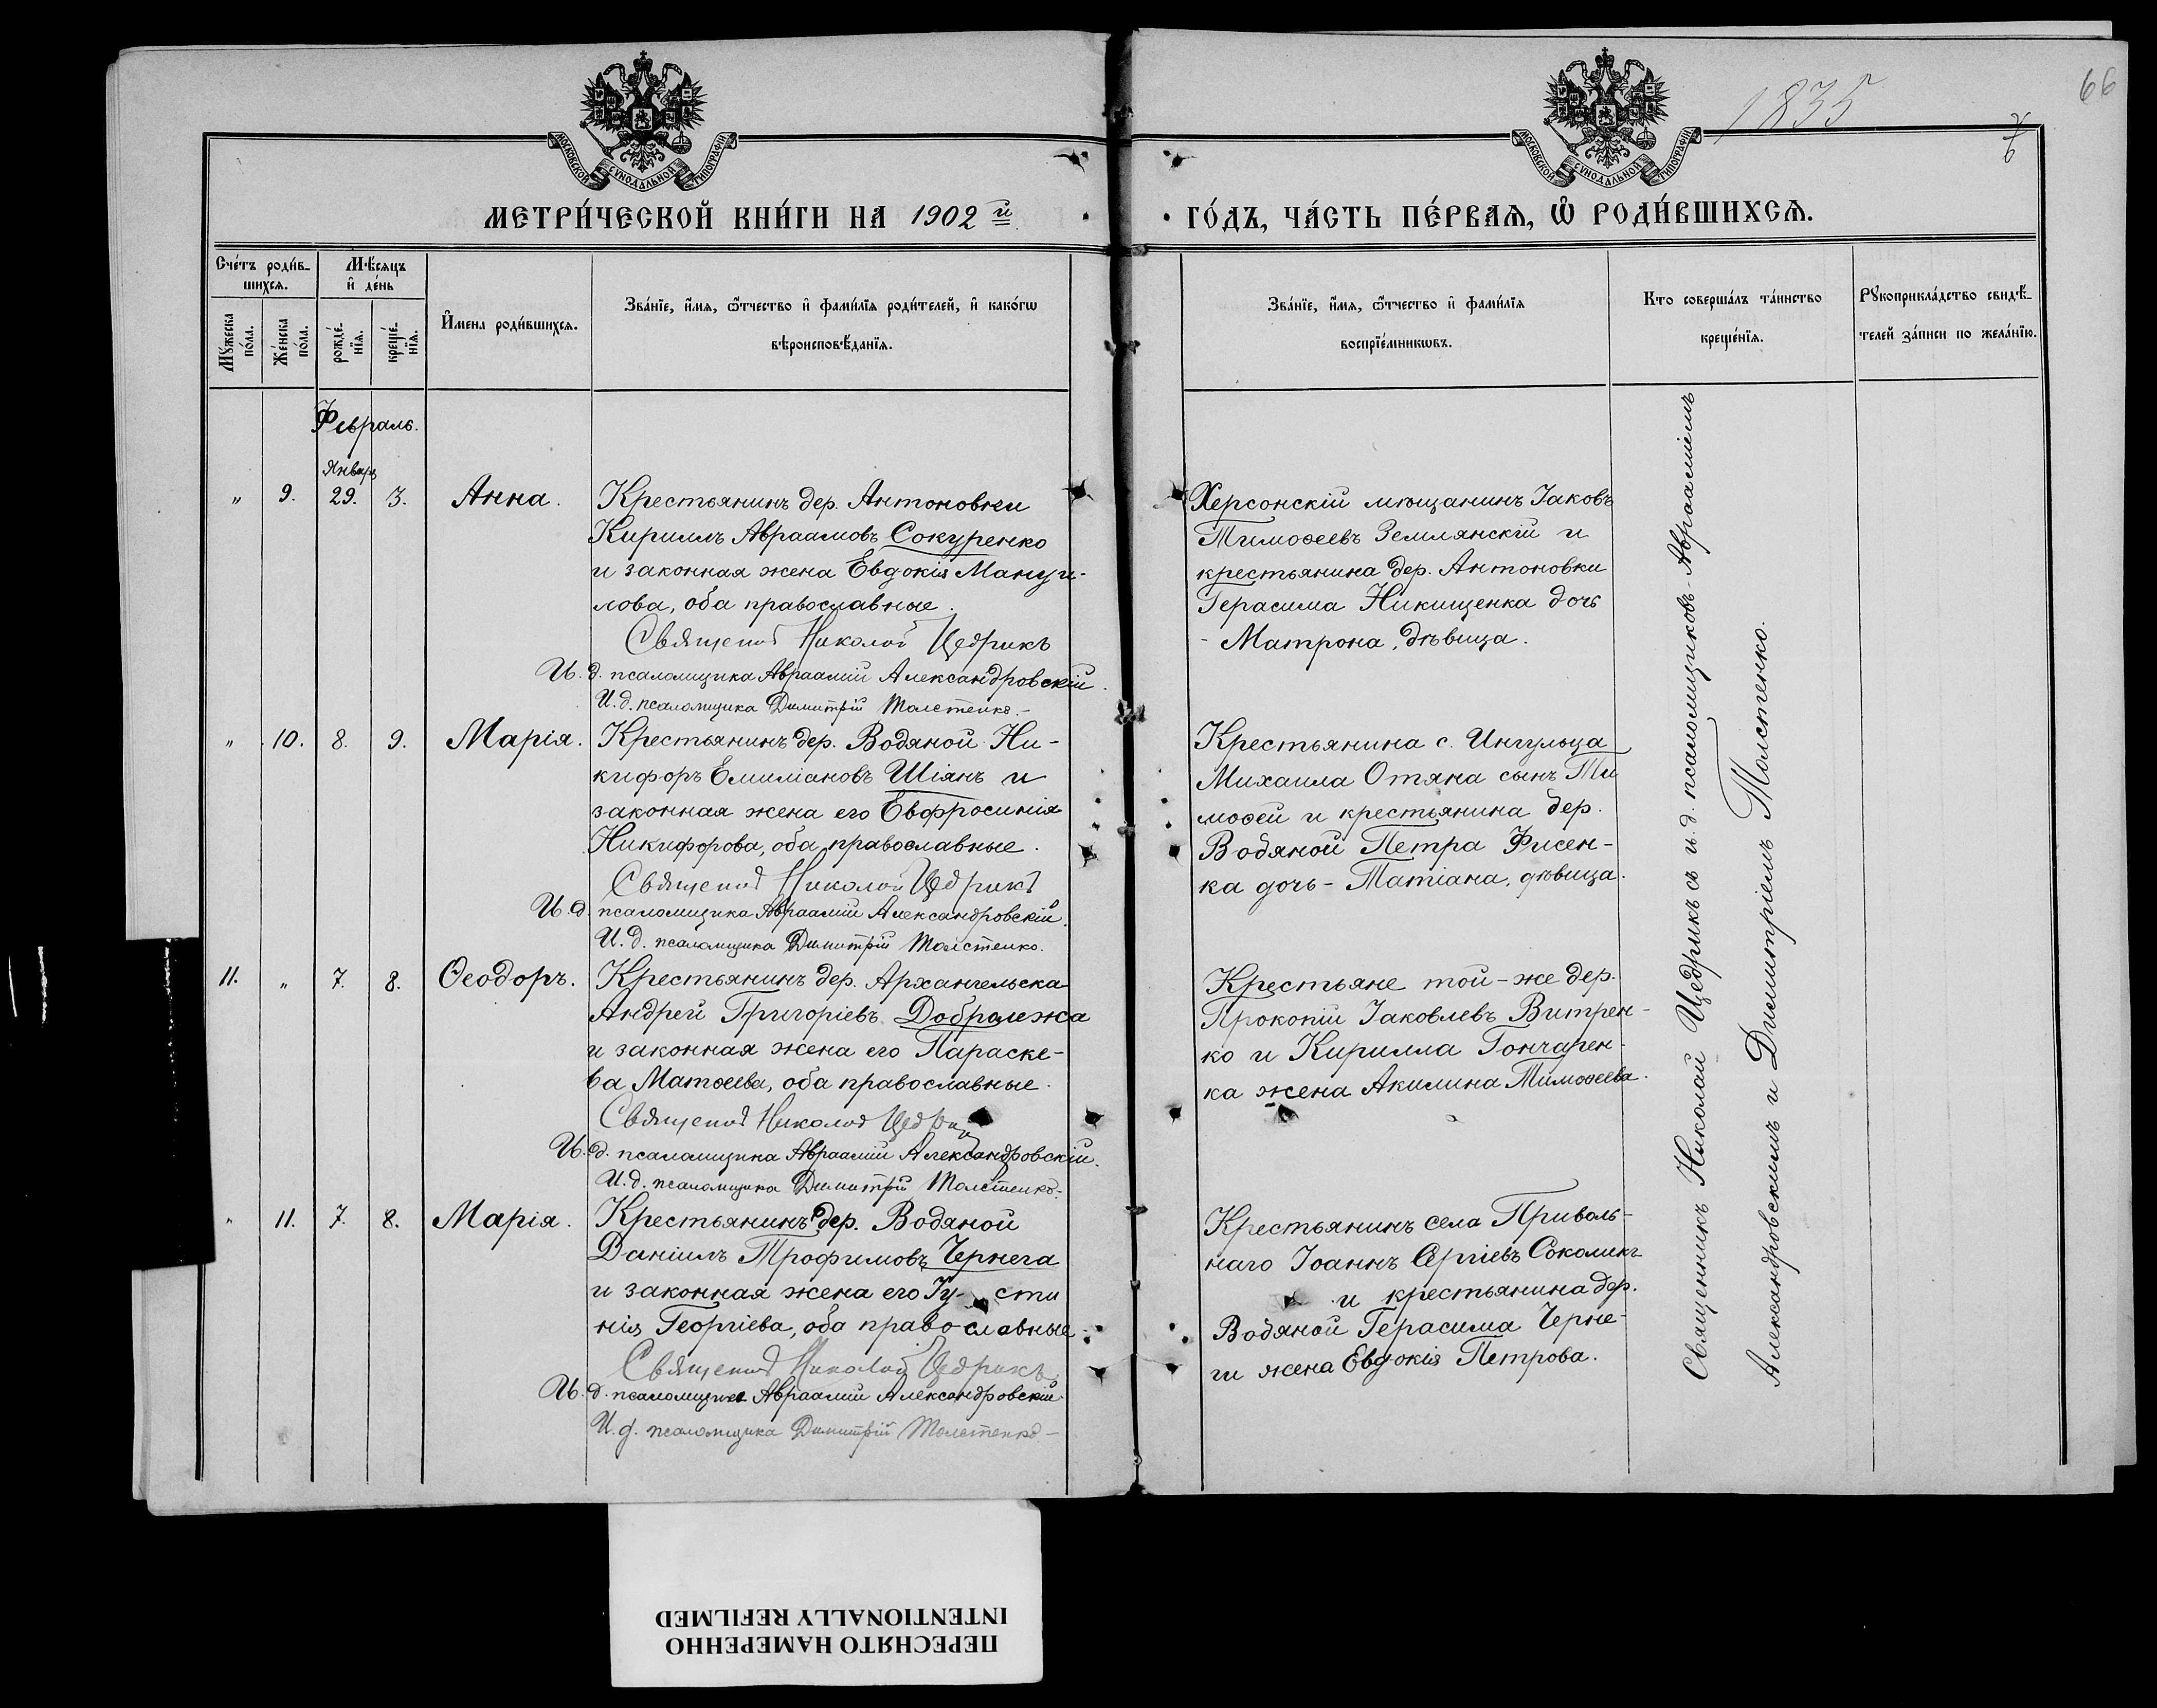 1835
66
6
МОСКОВСКОЙ СѴНОДАЛЬНОЙ ТИПОГРАФІИ
МОСКОВСКОЙ СѴНОДАЛЬНОЙ ТИПОГРАФІИ
МЕТРИ́ЧЕСКОЙ КНИ́ГИ НА 1902 й
ГО́ДЪ, ЧА́СТЬ ПЕ́РВАѦ, Ѡ҆ РОДИ́ВШИХСѦ.
Сче́тъ роди́в-
шихсѧ.
Мѣ́сяцъ
и҆ де́нь
Мꙋ́жеска
по́ла.
Же́нска
по́ла.
рожде́-
нїѧ.
креще́-
нїѧ.
И҆мена роди́вшихсѧ.
Зва́нїе, и҆́мѧ, ѻ҆́тчество и҆ фами́лїѧ роди́телей, и҆ како́гѡ
вѣроисповѣ́данїѧ.
Зва́нїе, и҆́мѧ, ѻ҆́тчество и҆ фами́лїѧ
воспрїе́мникѡвъ.
Кто соверша́лъ та́инство
креще́нїѧ.
Рꙋкоприкла́дство свидѣ́-
телей за́писи по жела́нїю.
Февраль.
Январь
„ 9. 29. 3. Анна. Крестьянинъ дер. Антоновки
Кириллъ Авраамовъ Сокуренко
и законная жена Евдокія Мануи-
лова, оба православные.
Священикъ Николай Щедрикъ
И. д. псаломщика Авраамій Александровскій.
И. д. псаломщика Димитрій Толстенко.-
Херсонскій мѣщанинъ Іаковъ
Тимоѳеевъ Землянскій и
крестьянина дер. Антоновки
Герасима Никищенка дочь
- Матрона, дѣвица.
„ 10. 8. 9. Марія. Крестьянинъ дер. Водяной Ни-
кифоръ Емиліановъ Шіянъ и
законная жена его Евфросинія
Никифорова, оба православные.
Священикъ Николай Щедрикъ
И. д. псаломщика Авраамій Александровскій.
И. д. псаломщика Димитрій Толстенко.
Крестьянина с. Ингульца
Михаила Отяна сынъ Ти
моѳей и крестьянина дер.
Водяной Петра Фисен-
ка дочь - Татіана, дѣвица.
11. „ 7. 8. Ѳеодоръ. Крестьянинъ дер. Архангельска
Андрей Григоріевъ Добролежа
и законная жена его Параске-
ва Матѳеева, оба православные.
Священикъ Николай Щедрикъ
И. д. псаломщика Авраамій Александровскій.
И. д. псаломщика Димитрій Толстенко.-
Крестьяне той-же дер.
Прокопій Іаковлевъ Витрен-
ко и Кирилла Гончарен-
ка жена Акилина Тимоѳеева.
„ 11. 7. 8. Марія. Крестьянинъ дер. Водяной
Даніилъ Трофимовъ Чернега
и законная жена его Іу- сти
нія Георгіева, оба православные.
Священикъ Николай Щедрикъ
И. д. псаломщика Авраамій Александровскій
И. д. псаломщика Димитрій Толстенко -
Крестьянинъ села Приволь-
наго Іоаннъ Сергіевъ
и крестьянина дер.
Водяной Герасима Черне-
ги жена Евдокія Петрова.
Священникъ Николай Щедрикъ съ и. д. псаломщиковъ Авраамiемъ
Александровскимъ и Димитріемъ Толстенко.
ПЕРЕСНЯТО НАМЕРЕННО
INTENTIONALLY REFILMED